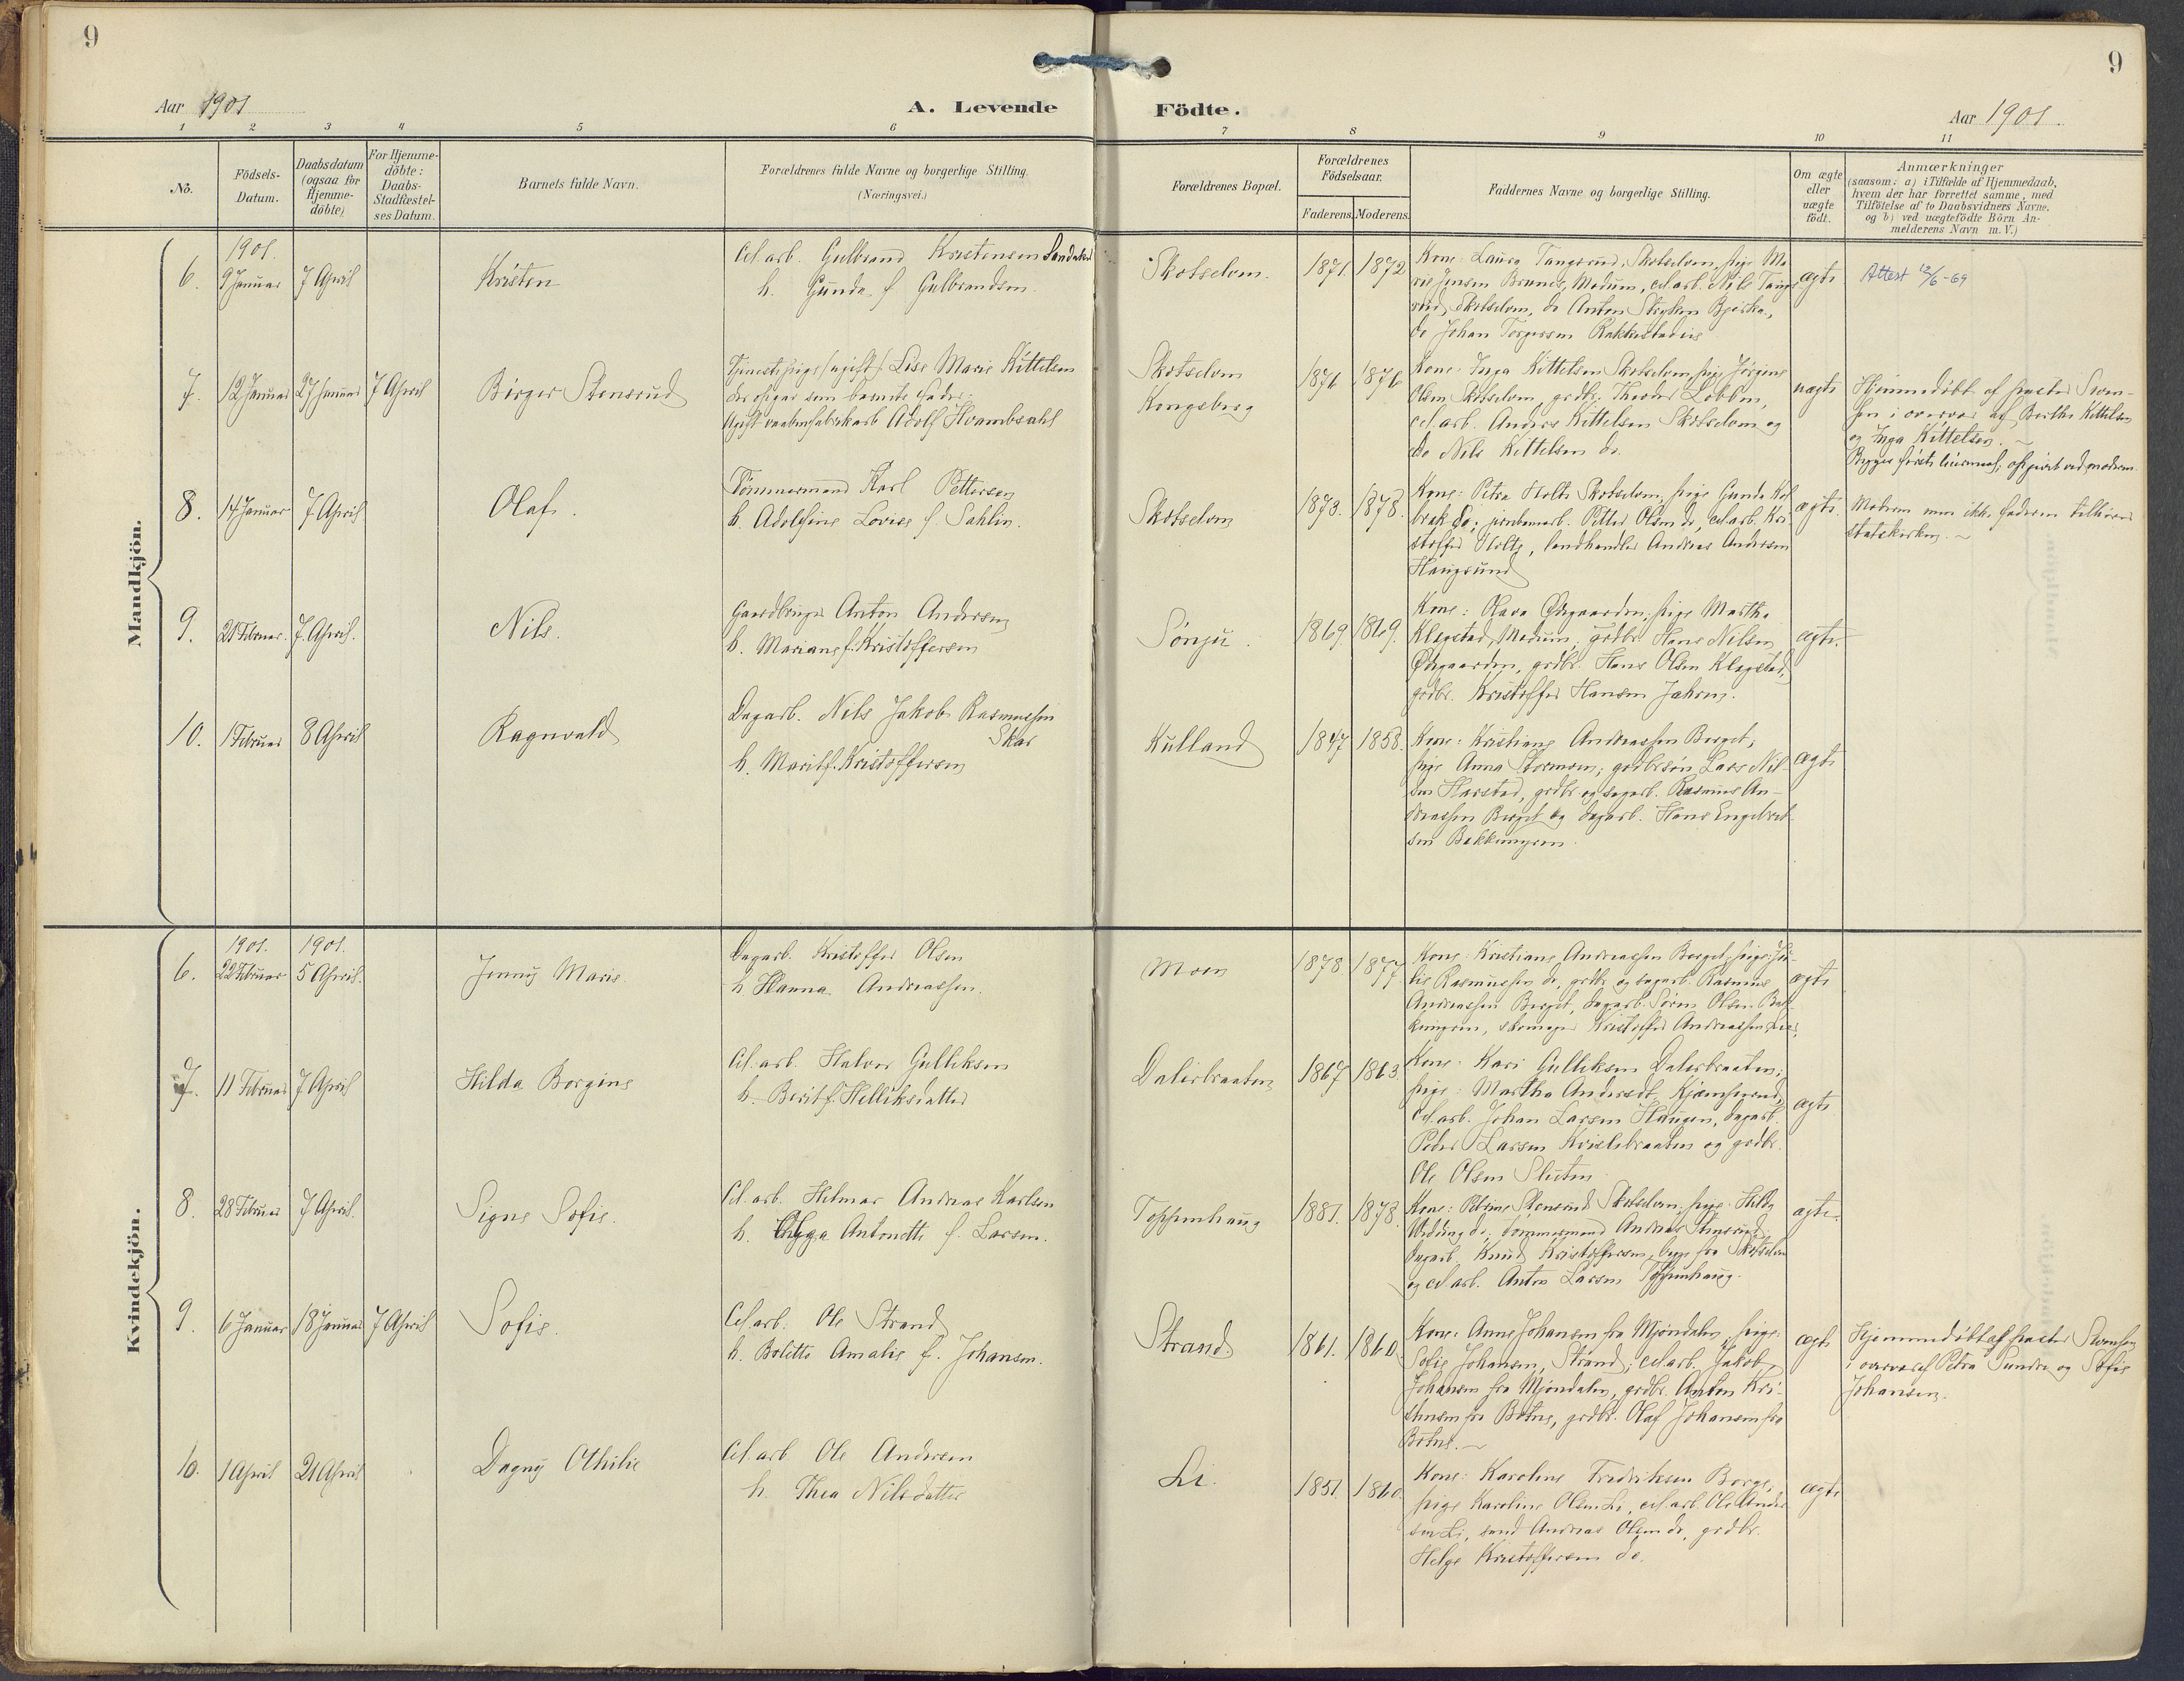 9
9
Aar 1901
A. Levende
Födte.
Aar 1901.
1 2 3 4 5 6 7 8 9 10 11
No.
Födsels-
Datum.
Daabsdatum
(ogsaa for
Hjemme-
döbte)
For Hjemme-
döbte:
Daabs-
Stadfæstel-
ses Datum.
Barnets fulde Navn.
Forældrenes fulde Navne og borgerlige Stilling.
(Næringsvei.)
Forældrenes Bopæl.
Forældrenes
Födselsaar.
Faderens. Moderens.
Faddernes Navne og borgerlige Stilling.
Om ægte
eller
uægte
födt.
Anmærkninger
(saasom: a) i Tilfælde af Hjemmedaab,
hvem der har forrettet samme, med
Tilföielse af to Daabsvidners Navne.
og b) ved uægtefödte Börn An-
melderens Navn m. V.)
Mandkjön.
1901.
6. 9 Januar 7 April
Kristen
Cel.arb. Gulbrand Kristensen Sandaker
h. Gunda f. Gulbrandsen
Skotselven.
1871. 1872
Kone: Laura Tangerud, Skotselven, pige Ma-
rie Jensen Brunes, Modum, cel.arb. Nils Tange-
rud, Skotselven, do Anton
do Johan Torgersen Rakkestadeie
ægte
Attest 12/6-69
7. 12 Januar 27 Januar 7 April
Börger Stensrud
Tjenestepige (ugift) Lise Marie Kittelsen
der opgav som barnets fader:
Ugift vaabenfabrikarb Adolf Hvambsahl
Skotselven
Kongsberg
1876 1876
Kone: Inga Kittelsen Skotselven, pige Jörgine
Olsen Skotselven, grdbr. Theodor Lobben,
cel.arb. Anders Kittelsen Skotselven og
do Nils Kittelsen do.
uægte
Hjemmedöbt af prester Sven-
sen i overvær af Berthe Kittelsen
og Inga Kittelsen.
Begges förste leiermaal, opgivet ved moderen.
8. 14 Januar 7 April
Olaf.
Tömmermand Karl Pettersen
h. Adolfine Lovise f. Sahlin.
Skotselven
1873. 1878.
Kone: Petra Holte Skotselven, pige Gunda Kol-
brek do; jernbanearb. Petter Olsen do, cel.arb. Kri-
stoffer Holte, landhandler Andreas Andersen
Haugsund
ægte.
Modern men ikke faderen tilhörer
statskirken.
9. 21 Februar. 7. April.
Nils.
Gaardbruger Anton Andersen
h. Mariane f. Kristoffersen
Sönju.
1869. 1869.
Kone: Olava Ødegaarden; pige Martha
Klegstad, Modum, grdbr. Hans Nilsen
Ødegaarden, grdbr. Hans Olsen Klegstad,
grdbr. Kristoffer Hansen Jahren.
ægte.
10. 1 Februar 8 April
Ragnvald
Dagarb. Nils Jakob Rasmussen
Skar
h. Marit f. Kristoffersen
Kulland
1847 1858.
Kone: Kristiane Andreassen Berget,
pige Anna Stormoen; grdbrsön Lars Nil-
sen Harstad, grdbr. og dagarb. Rasmus An-
dreassen Berget og dagarb. Hans Engebret-
sen Bakkeengen.
ægte
Kvindekjön.
1901. 1901.
6. 22 Februar 5 April.
Jenny Marie.
Dagarb. Kristoffer Olsen
h. Hanna Andreassen.
Moen
1878. 1877
Kone: Kristiane Andreassen Berget, pige: Ju-
lie Rasmussen do, grdbr. og dagarb. Rasmus
Andreassen Berget, dagarb. Sören Olsen Bak-
keengen, skomager Kristoffer Andreassen
ægte
7. 11 Februar 7 April
Hilda Borgine
Cel.arb. Halvor Gulliksen
h. Berit f. Helliksdatter
Dalerbraaten
1867 1863.
Kone: Kari Gulliksen Dalerbraaten;
pige: Martha Andersdt. Kjæmperud,
Cel.arb. Johan Larsen Haugen, dagarb.
Peder Larsen Krislebraaten og grdbr.
Ole Olsen Sletten
ægte
8. 28 Februar 7 April.
Signe Sofie.
Cel.arb. Helmer Andreas Karlsen
h. Helga Antonette f. Larsen.
Toppenhaug
1881. 1878.
Kone: Petrine Stensrud Skotselven, pige: Hilda
do; tömmermand Andreas Stensrud,
dagarb. Knud Kristoffersen, begge fra Skotselven
og cel.arb. Anton Larsen Toppenhaug.
ægte.
9. 6 Januar 18 Januar 7 April
Sofie.
Cel.arb. Ole Strand
h. Bolette Amalie f. Johansen.
Strand
1861. 1860.
Kone: Anne Johansen fra Mjöndalen, pige:
Sofie Johansen, Strand; cel.arb. Jakob
Johansen fra Mjöndalen, grdbr. Anton Kri-
stensen fra Botne, grdbr. Olaf Johansen fra
Botne.
ægte
Hjemmedöbt af prester Svensen
i overvær af Petra Sundre og Sofie
Johansen.
10. 1 April 21 April
Dagny Othilie
Cel.arb Ole Andersen
h. Thea Nilsdatter
Li.
1851. 1860.
Kone: Karoline Fredriksen Borge,
pige Karoline Olsen Li, cel.arb. Ole Ander-
sen Li, Andreas Olsen do, grdbr.
Helge Kristoffersen do.
ægte